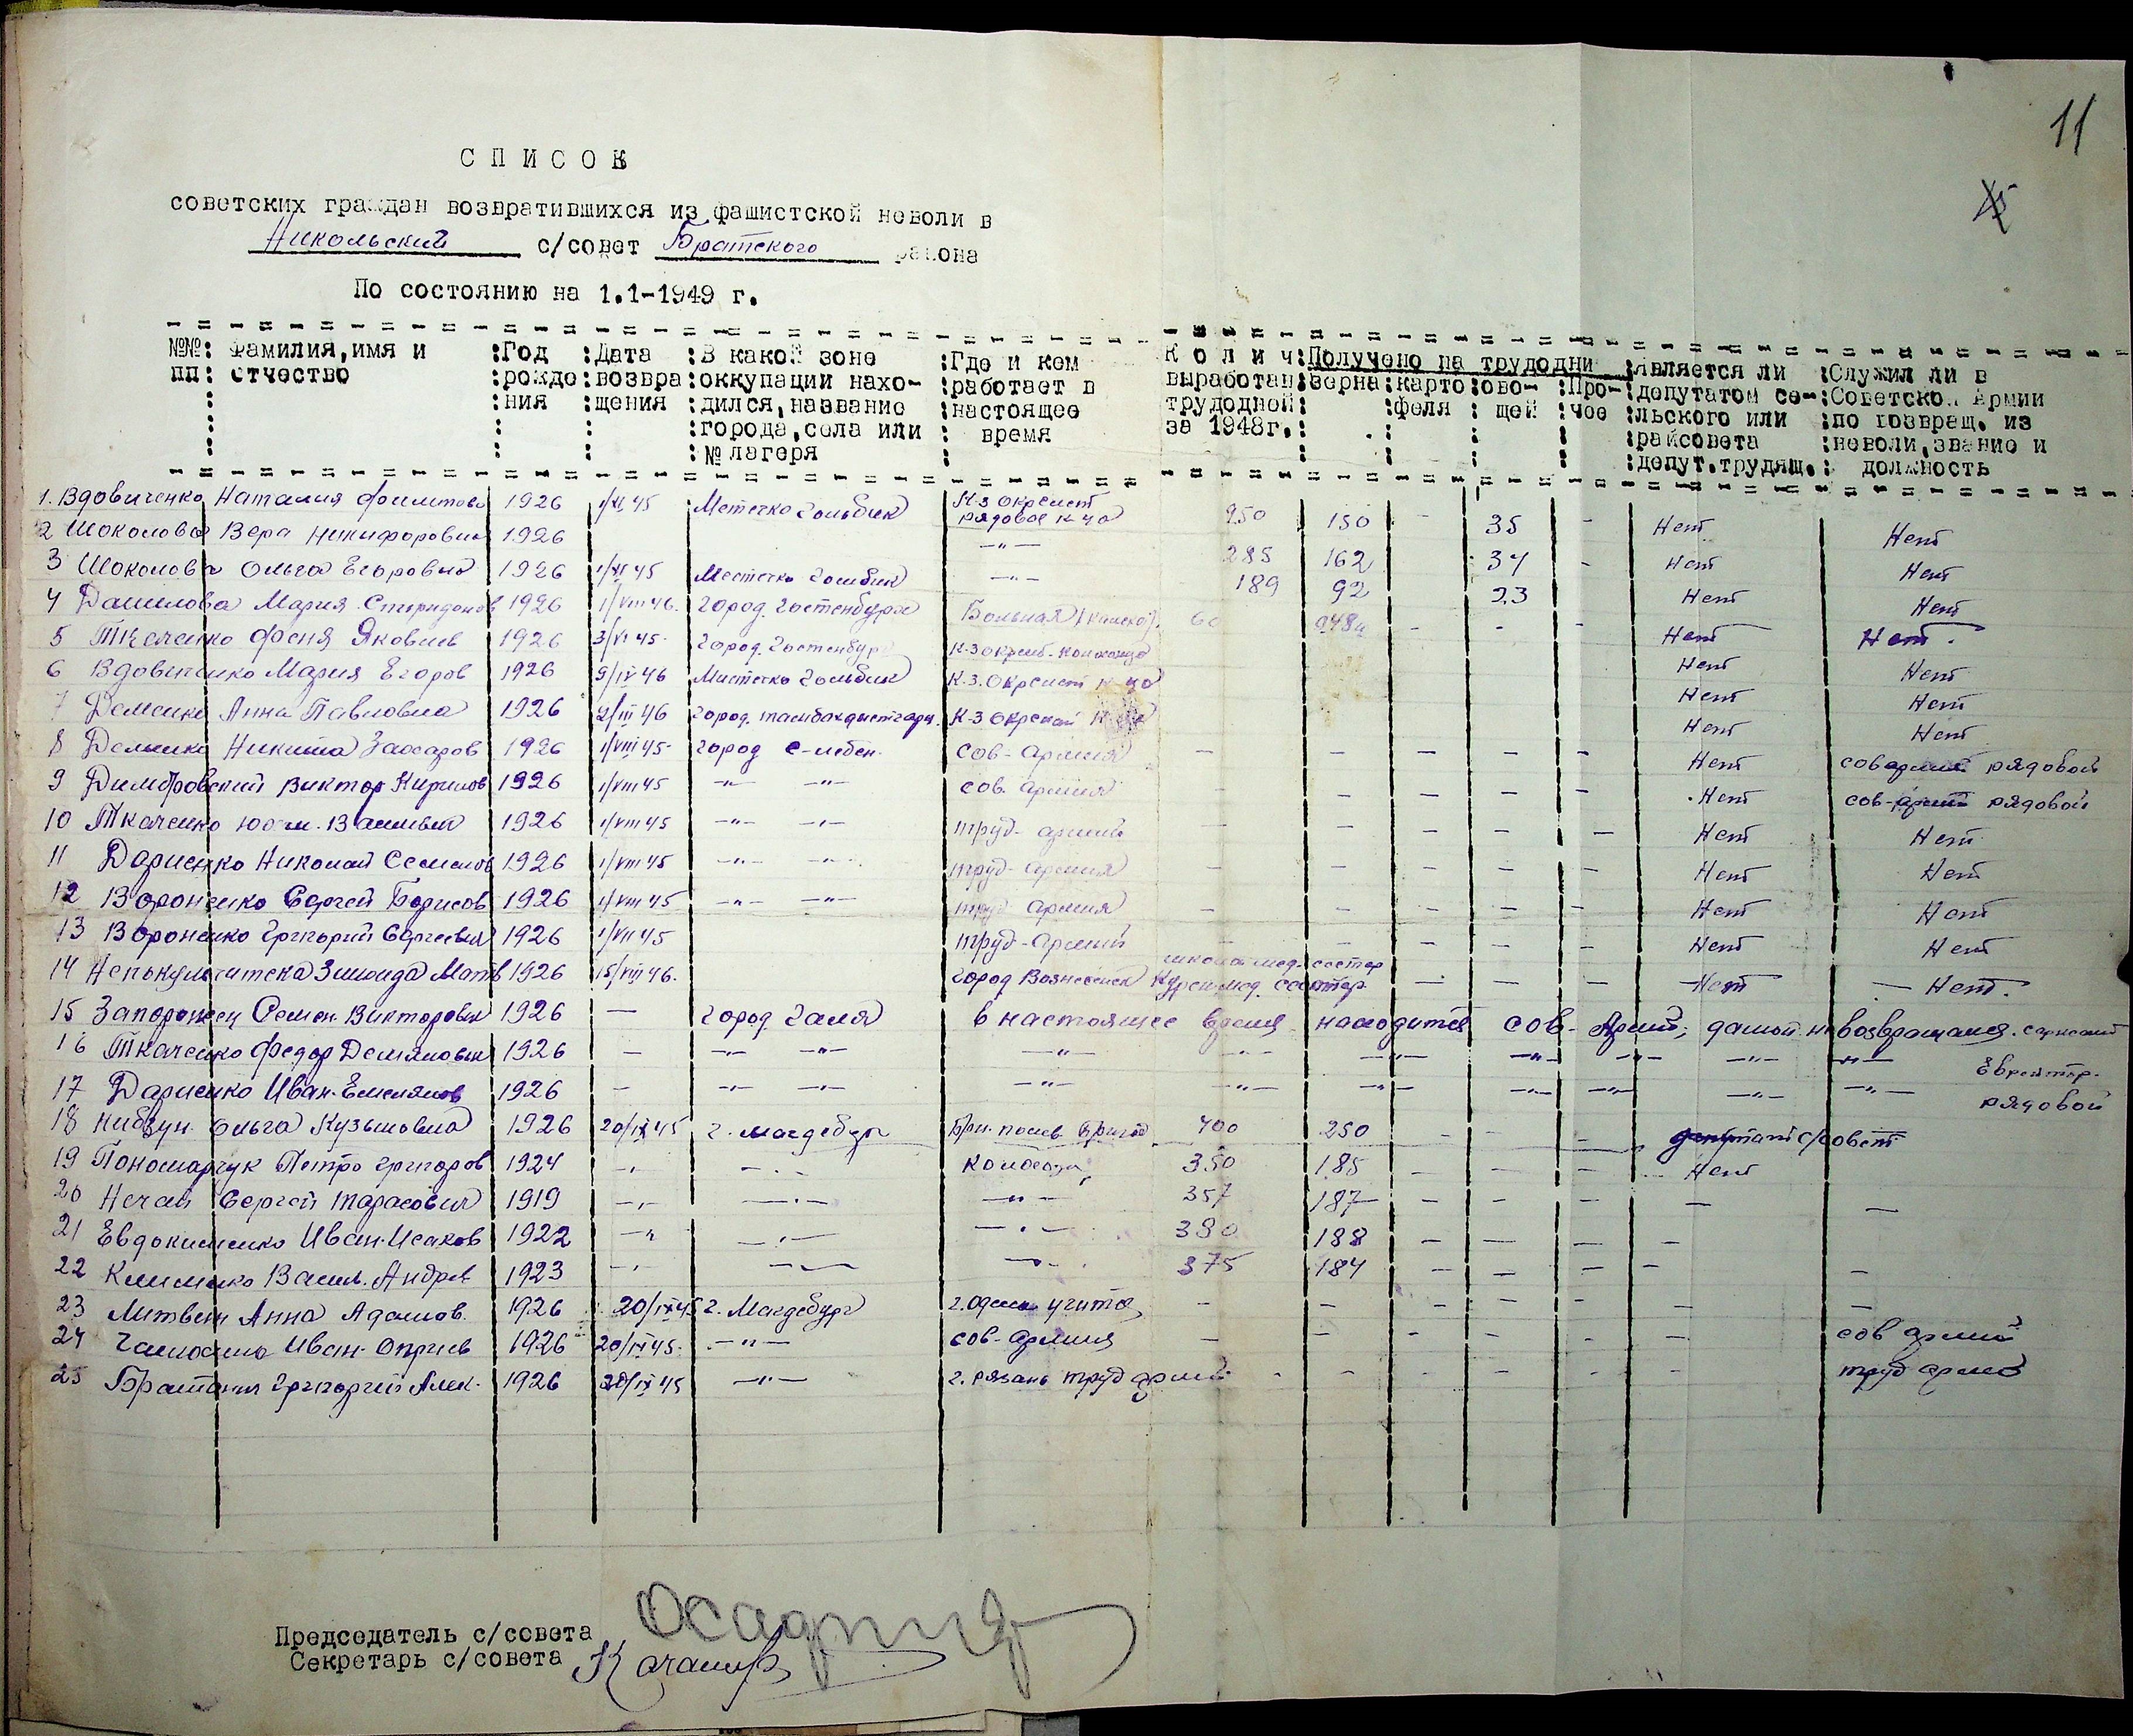 11
СПИСОК
советских граждан возвратившихся из фашистской неволи в
Никольский с/совет Братского района
По состоянию на 1.1-1949 г.
№№ пп : Фамилия, имя и отчество : Год рождения : Дата возвращения : В какой зоне оккупации находился, название города, села или № лагеря : Где и кем работает в настоящее время : Колич выработан трудодней за 1948г. : Получено на трудодни зерна : картофеля : овощей : Прочее : Является ли депутатом сельского или райсовета депут. трудящ. : Служил ли в Советской Армии по возвращ. из неволи, звание и должность
1. Вдовиченко Наталия 1926 1/XI 45 Метечко К-з Окрсист рядовое к-ца 250 150 - 35 - Нет Нет
2 Шоколова Вера Никифоровна 1926 -"- 285 162 34 - Нет Нет
3 Шоколова Ольга Егоровна 1926 1/XI 45 Местечко -"- 189 92 23 Нет Нет
4 Данилова Мария Спиридонов 1926 1/VIII 46. город. Больная 60 - - - Нет Нет.
5 Ткаченко Феня Яковлев 1926 3/VI 45. город. Нет Нет
6 Вдовиченко Мария Егоров 1926 9/IV 46 Местечко К-з. Нет Нет
7 Деменко Анна Павловна 1926 2/III 46 город. К-з Нет Нет
8 Деменко Никита Захаров 1926 1/VIII 45. город сов-армия - - - - - Нет сов армии рядовой
9 Виктор Кирилов 1926 1/VIII 45 -"- -"- сов. армия - - - - - Нет сов-армии рядовой
10 Ткаченко 1926 1/VIII 45 -"- -"- труд-армии - - - - - Нет Нет
11 Дариенко Николай Семенов 1926 1/VIII 45 -"- -"- труд-армия - - - - - Нет Нет
12 Вороненко Сергей Борисов 1926 1/VIII 45 -"- -"- труд армия - - - - - Нет Нет
13 Вороненко Григорий Сергеевич 1926 1/VII 45 труд-армии - - - - - Нет Нет
14 Зинаида Матв 1926 15/VIII 46. город Вознесенск мед. сестер - - - - Нет - Нет.
15 Запорожец Семен Викторович 1926 - город Галя в настоящее время находится сов-Армии, домой не возвращался. сержант
16 Ткаченко Федор Демянович 1926 - -"- -"- -"- -"- -"- -"- -"- -"- -"- Ефрейтор.
17 Дариенко Иван Емелянов 1926 - -"- -"- -"- -"- -"- -"- -"- -"- -"- рядовой
18 Ольга Кузьмовна 1926 20/IX 45 г. Магдебург Бри. полев. бригад. 400 250 - - - депутат с/совет
19 Пономарчук Петро Григоров 1924 -"- -"- колхоза, 350 185 - - - Нет
20 Нечай Сергей Тарасович 1919 -"- -"- -"- 357 187 - - - - -
21 Евдокименко Иван Исаков 1922 -"- -"- -"- 380 188 - - - -
22 Клименко Васил. Андрев 1923 -"- -"- -"- 375 184 - - - - -
23 Литвин Анна Адамов. 1926 20/IX 45 г. Магдебург г. Одесса - - - - - - -
24 Иван 1926 20/IX 45. -"- сов-армия - - - - - - сов армии
25 Григорий Алек. 1926 20/IX 45 -"- г. Рязань труд армии - - - - - - труд армо
Председатель с/совета
Секретарь с/совета